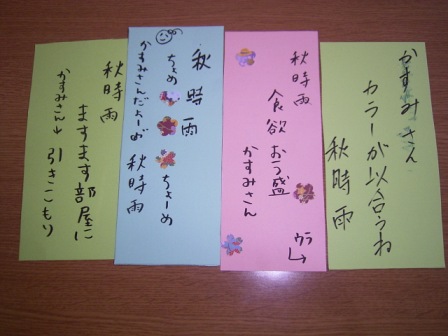 かすみさん
カラーが似合うね
秋時雨
秋時雨
食欲おう盛
かすみさん
ウラ
秋時雨
ちょめ ちょーめ
かすみさんだよーめ 秋時雨
秋時雨
ますます部屋に
かすみさん 引きこもり